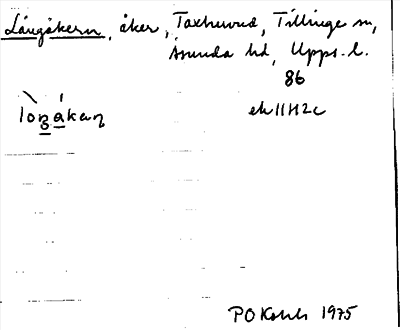 Långåkern, åker, Taxhuvud, Tillinge sn,
Åsunda hd, Upps. l.
86
ek 11H2c
1975